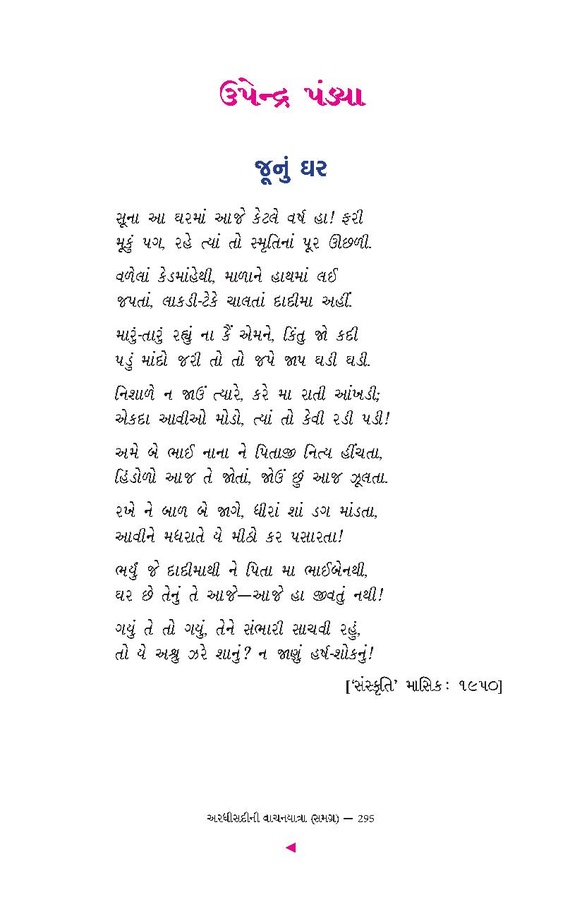 ઉપેન્દ્ર પંડ્યા
જૂનું ઘર
સૂના આ ઘરમાં આજે કેટલે વર્ષ હા! ફરી
મૂકું પગ, રહે ત્યાં તો સ્મૃતિનાં પૂર ઊછળી.
વળેલાં કેડમાંહેથી, માળાને હાથમાં લઈ
જપતાં, લાકડી-ટેકે ચાલતાં દાદીમા અહીં.
મારું-તારું રહ્યું ના કૈં એમને, કિંતુ જો કદી
પડું માંદો જરી તો તો જપે જાપ ઘડી ઘડી.
નિશાળે ન જાઉં ત્યારે, કરે મા રાતી આંખડી;
એકદા આવીઓ મોડો, ત્યાં તો કેવી રડી પડી!
અમે બે ભાઈ નાના ને પિતાજી નિત્ય હીંચતા,
હિંડોળો આજ તે જોતાં, જોઉં છું આજ ઝૂલતા.
રખે ને બાળ બે જાગે, ધીરાં શાં ડગ માંડતા,
આવીને મધરાતે યે મીઠો કર પસારતા!
ભર્યું જે દાદીમાથી ને પિતા મા ભાઈબેનથી,
ઘર છે તેનું તે આજે—આજે હા જીવતું નથી!
ગયું તે તો ગયું, તેને સંભારી સાચવી રહું,
તો યે અશ્રુ ઝરે શાનું? ન જાણું હર્ષ-શોકનું!
[‘સંસ્કૃતિ’ માસિક: ૧૯૫૦]
અરધીસદીની વાચનયાત્રા (સમગ્ર) — 295